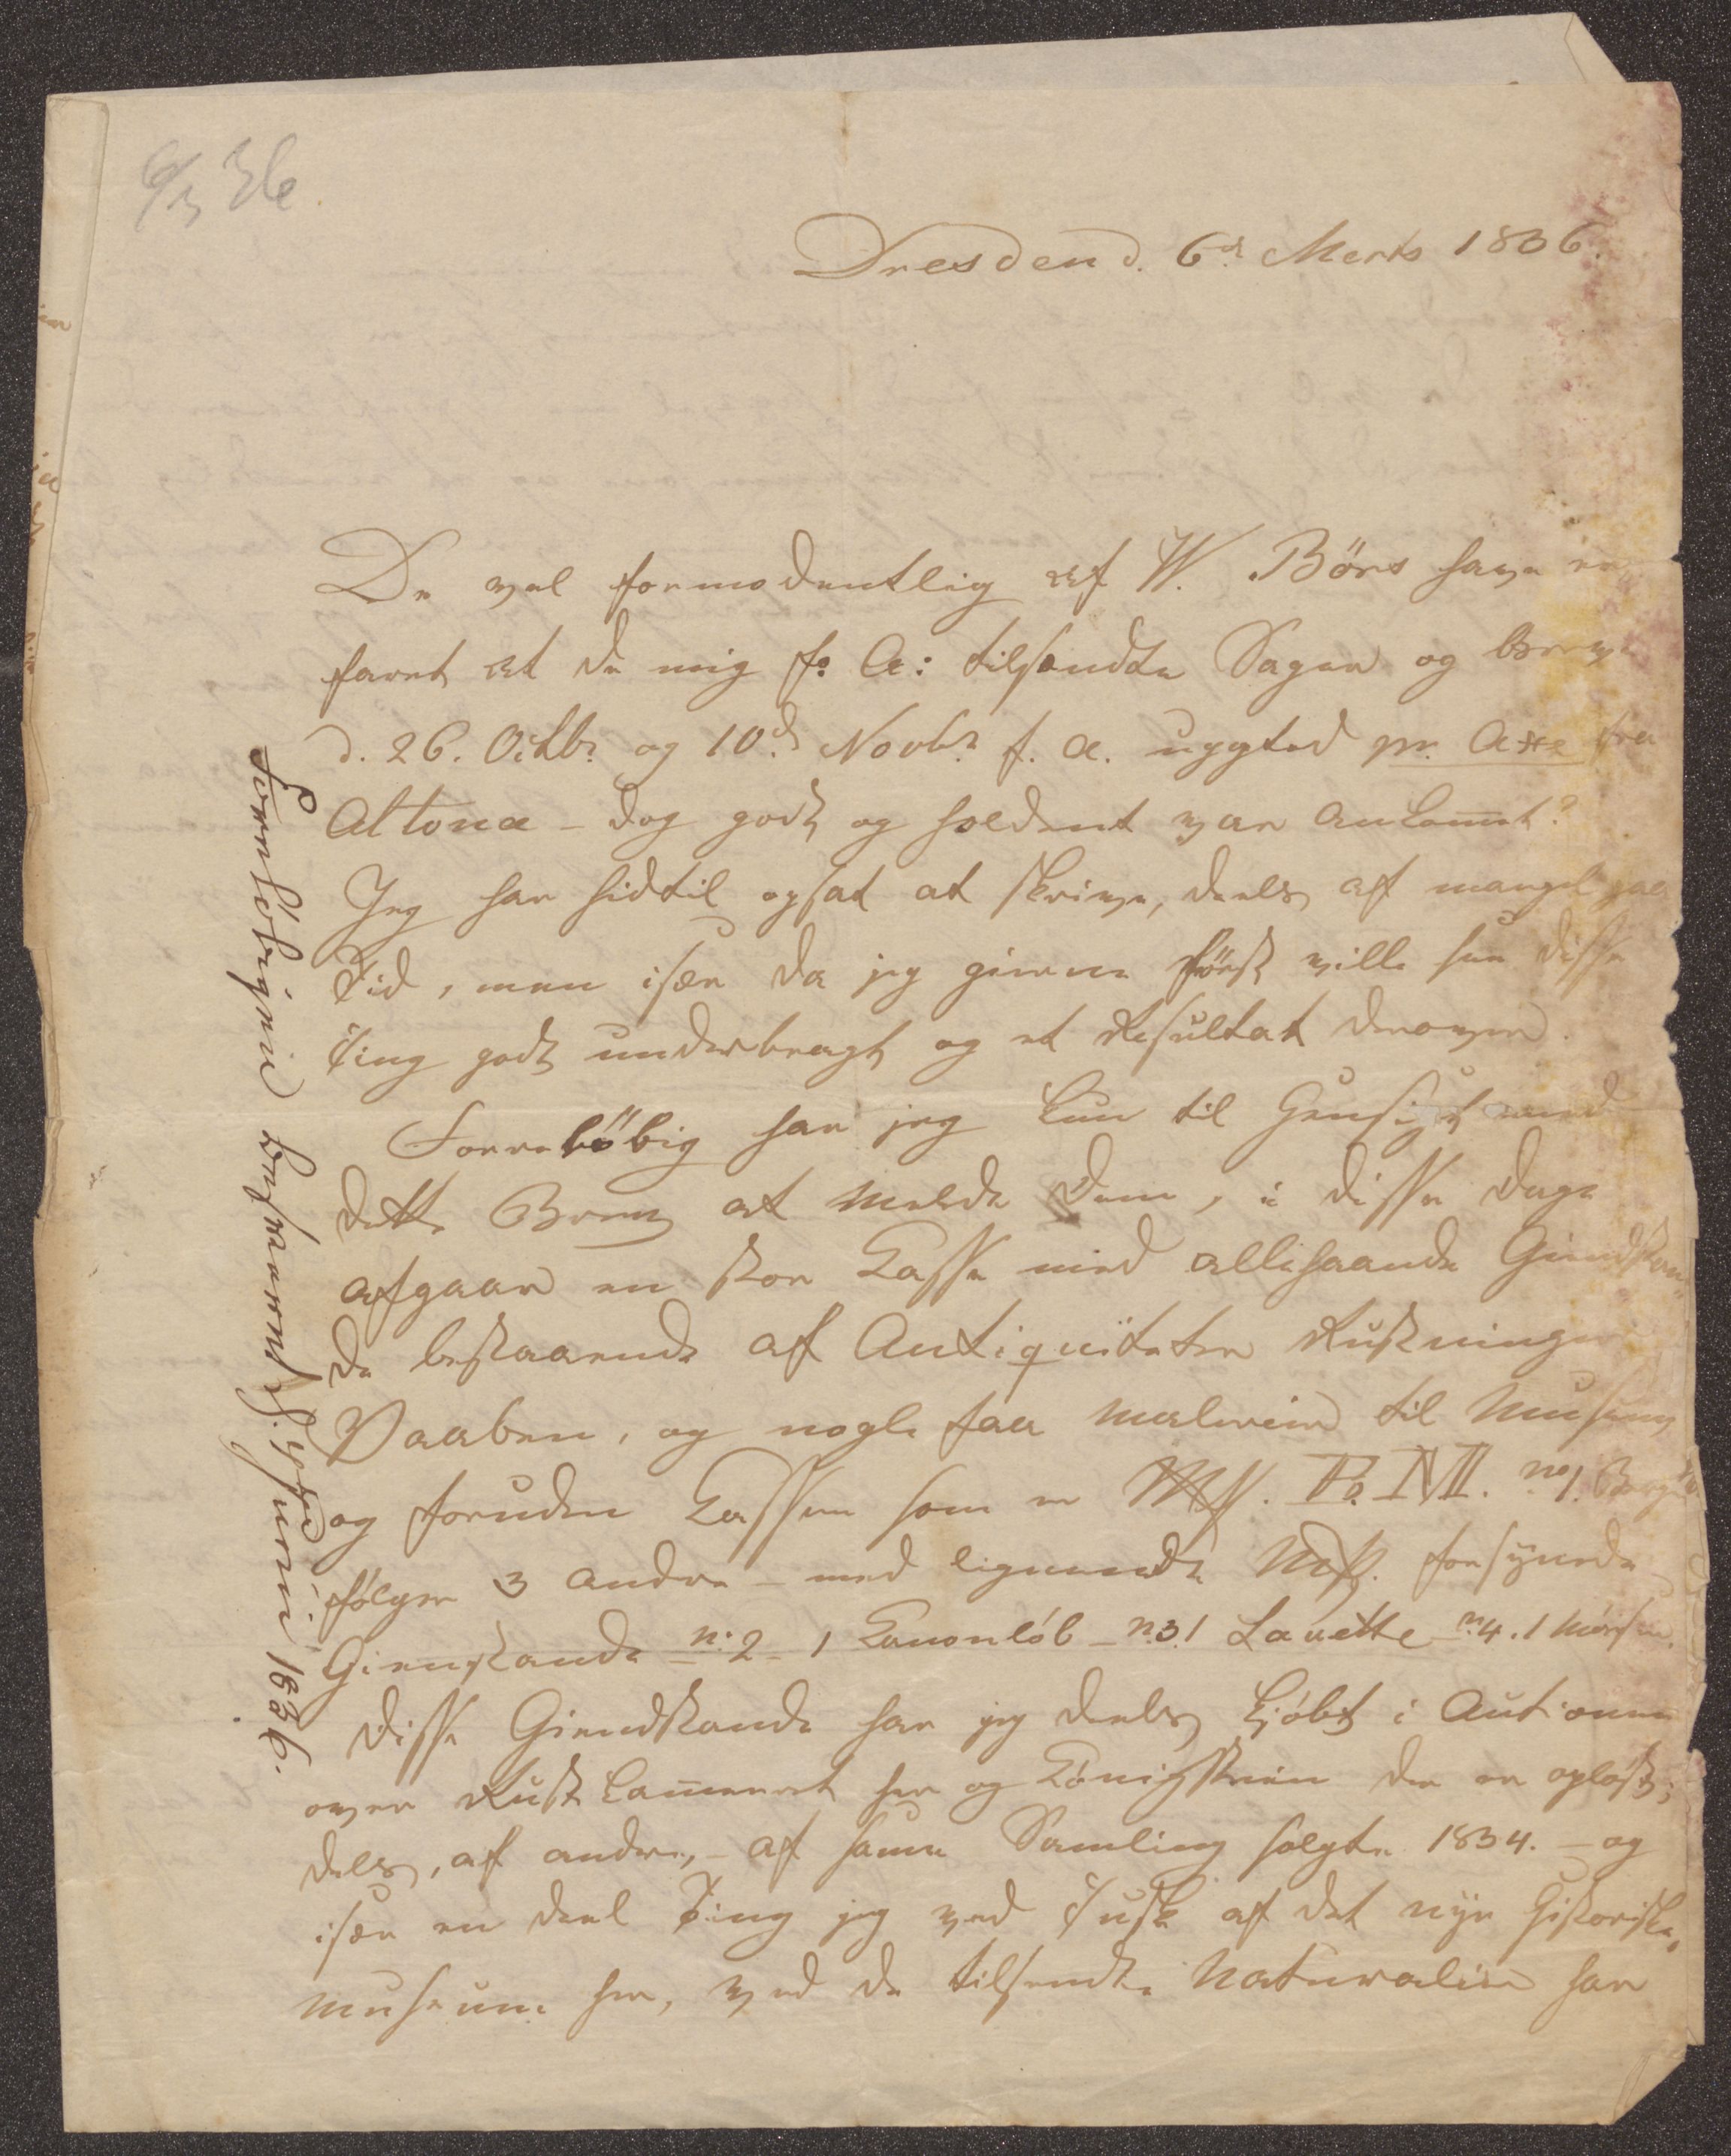 6/3 36.
Dresden d. 6d Marts 1836.
De vel formodentlig af W. Börs have er
faret at de mig f: A: tilsendte Sager og breve
d. 26. Octbr og 10d Novbr f. A. uagted pr. Axe fra
Altona – dog godt og holdent var ankomet?
Jeg har hidtil opsat at skrive, deels af mangel paa
Tid, men især da jeg gierne först ville see disse
Ting godt underbragt og et Resultat derover.
Forelöbig har jeg kun til Hensigt med
dette Brev at melde Dem, i disse Dage
afgaar en stor Casse med allehaande Giendstan„
de bestaaende af Antiquiteter Rustninger
Vaaben, og nogle faa Malerier til Museum
og foruden Cassen som er no 1.
fölger 3 andre – med lignende forsynede
Gienstande – n: 2 – 1 Canonlöb – n: 3 1 Lavette n: 4. 1 Mörser.
Disse Giendstande har jeg deels kjöbt i Auctionen
over Rustkameret her og Königsstein der er oplöst;
deels, af andre, – af same Samling solgte 1834. – og
især en deel Ting jeg ved Tusk af det nye Historiske„
Museum her, ved de tilsendte Naturalier har
Foreløbigen besvaret d. Juni 1836.